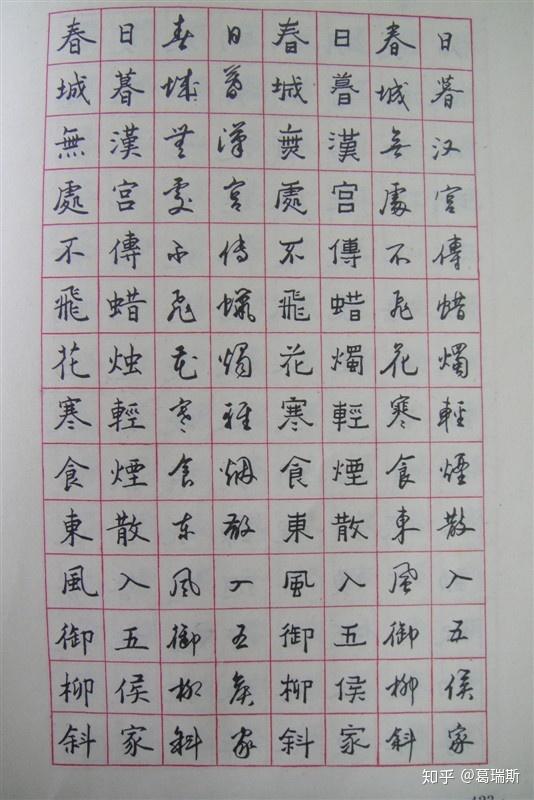 春城無處不飛花寒食東風御柳斜
日暮漢宮傳蜡烛輕煙散入五侯家
春城無處不飛花寒食东風御柳斜
日暮漢宮傳蠟燭輕烟散入五侯家
春城無處不飛花寒食東風御柳斜
日暮漢宮傳蜡燭輕煙散入五侯家
春城无處不飛花寒食東風御柳斜
日暮汉宮傳蜡燭輕煙散入五侯家
知乎 @葛瑞斯